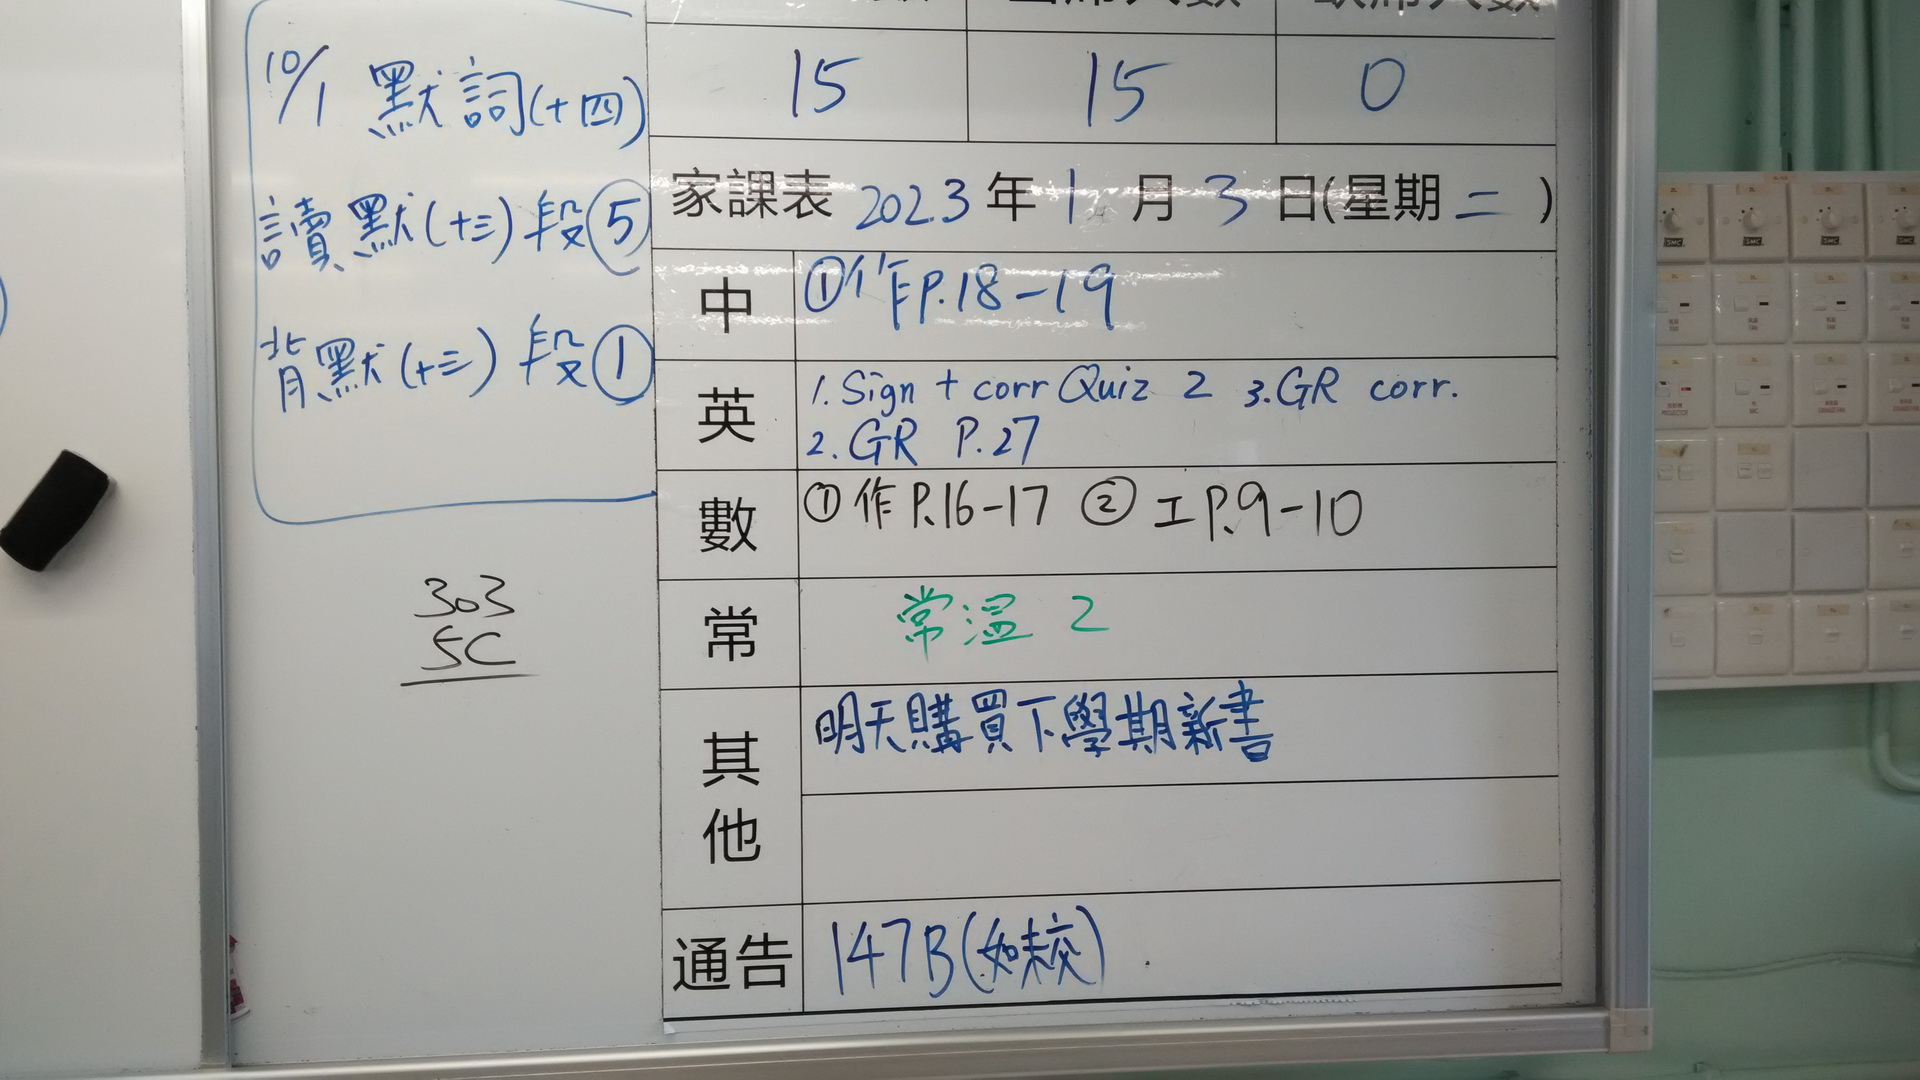 10/1 默詞(十四)
讀默(十三)段⑤
背默(十三)段①
303
5C
15 15 0
家課表 2023 年 1 月 3 日(星期二)
中 ①作P.18-19
英 1. Sign + corr Quiz 2 3. GR corr.
2. GR P.27
數 ①作P.16-17 ②工P.9-10
常 常溫 2
其他 明天購買下學期新書
通告 147B(如未交)